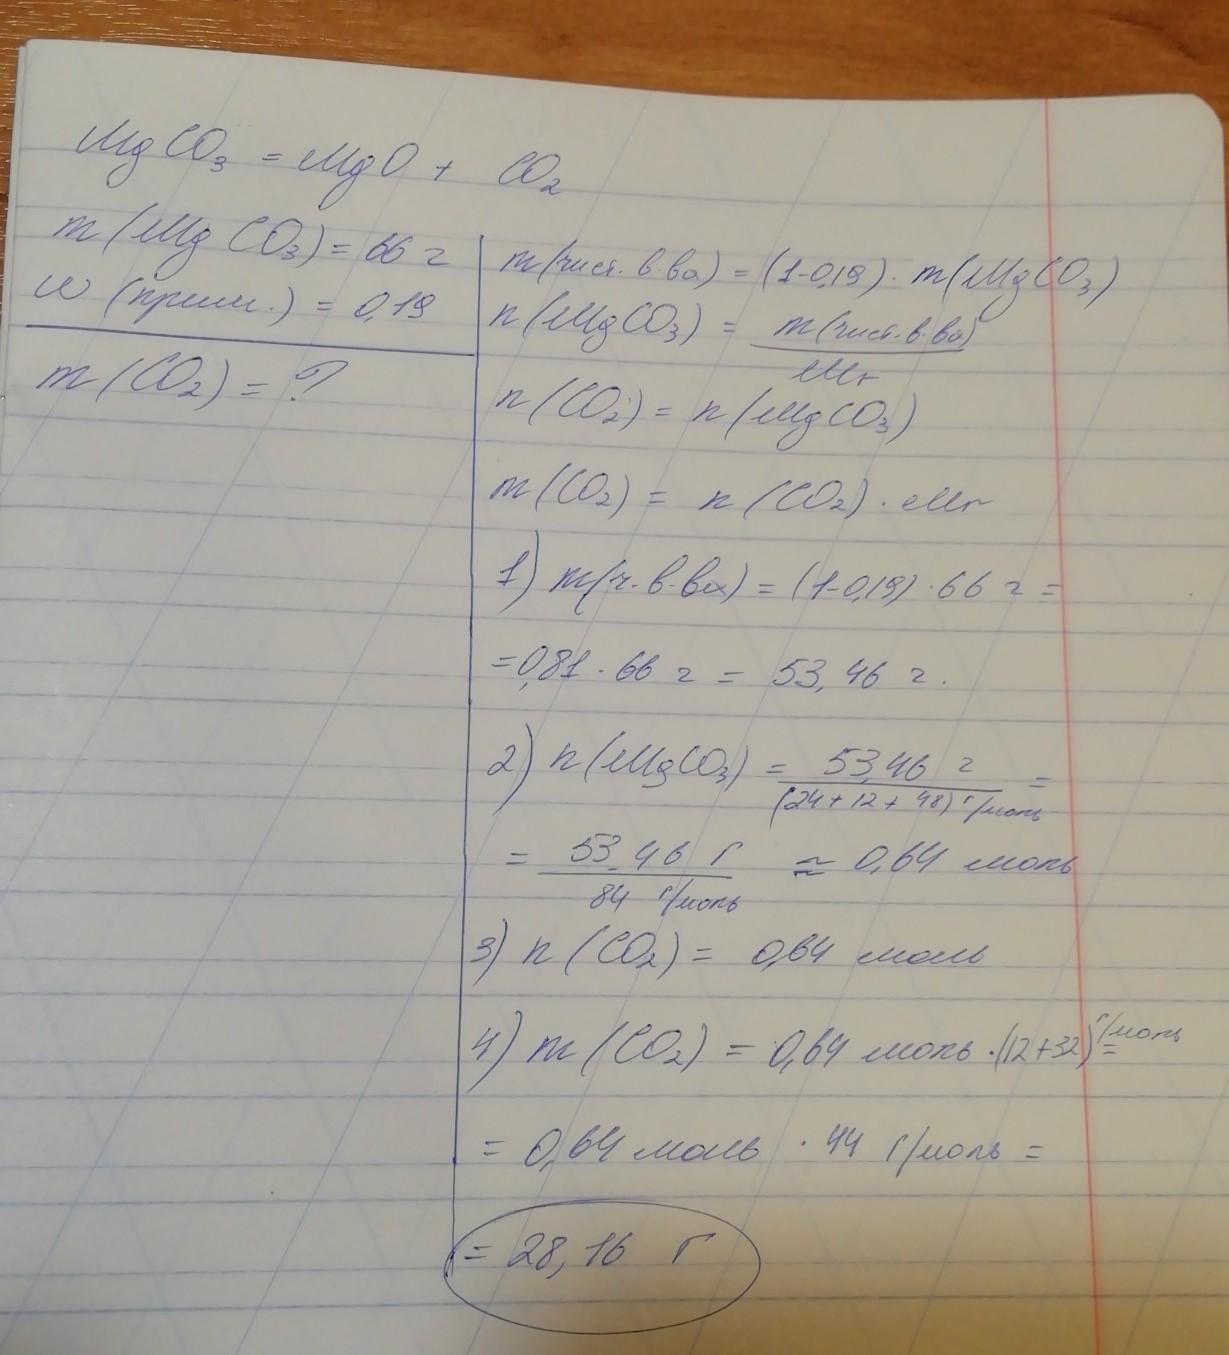 MgCO₃ = MgO + CO₂
m(MgCO₃) = 66 г
w (прим.) = 0,19
m(CO₂) = ?
m(чист. в-ва) = (1-0,19) · m(MgCO₃)
n(MgCO₃) = m(чист. в-ва) / Mr
n(CO₂) = n(MgCO₃)
m(CO₂) = n(CO₂) · Mr
1) m(ч. в-ва) = (1-0,19) · 66 г =
= 0,81 · 66 г = 53,46 г.
2) n(MgCO₃) = 53,46 г / (24+12+48) г/моль =
= 53,46 г / 84 г/моль ≈ 0,64 моль
3) n(CO₂) = 0,64 моль
4) m(CO₂) = 0,64 моль · (12+32) г/моль =
= 0,64 моль · 44 г/моль =
= 28,16 г